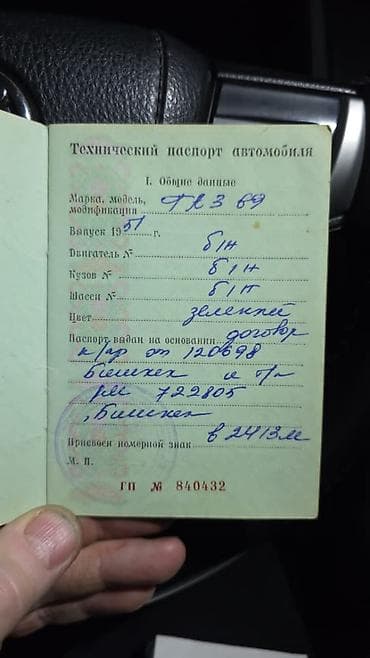 Технический паспорт автомобиля
I. Общие данные
Марка, модель,
модификация ГАЗ 69
Выпуск 1951 г.
Двигатель № б/н
Кузов № б/н
Шасси № б/н
Цвет зеленый
Паспорт выдан на основании договор
к/пр от 120698
Бишкек и т/п
РМ 722805
г.Бишкек
Присвоен номерной знак в 2413 м
М. П.
ГП № 840432